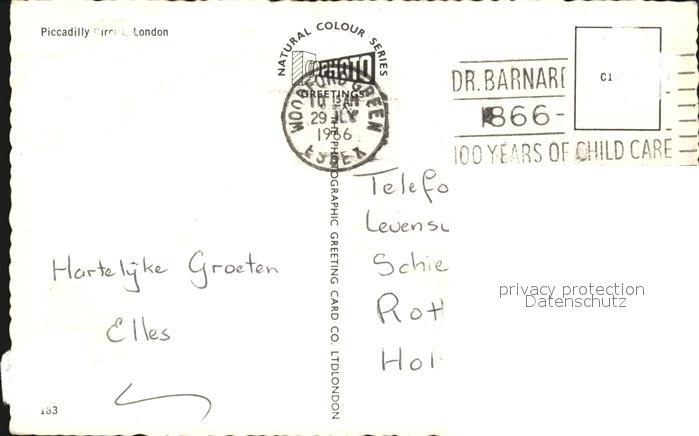 Piccadilly Circus, London
NATURAL COLOUR SERIES
PHOTO
GREETINGS
WOODFORD GREEN
10 15 AM
29 JLY
1966
ESSEX
DR. BARNAR
1866-
100 YEARS OF CHILD CARE
THE PHOTOGRAPHIC GREETING CARD CO. LTD LONDON
Telefo
Levensv
Schie
Rott
Hol
Hartelijke Groeten
Elles
privacy protection
Datenschutz